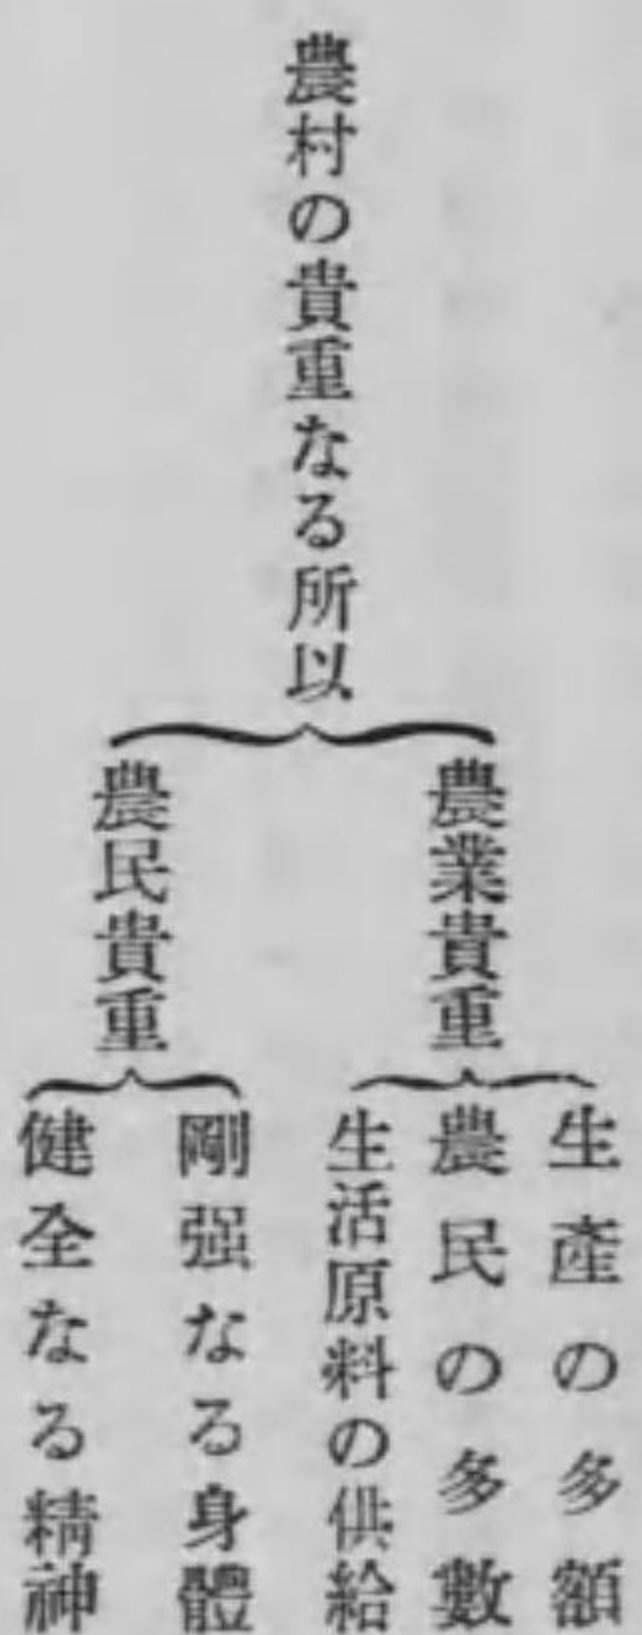 農村の貴重なる所以
農業貴重
生産の多額
農民の多數
生活原料の供給
農民貴重
剛强なる身體
健全なる精神